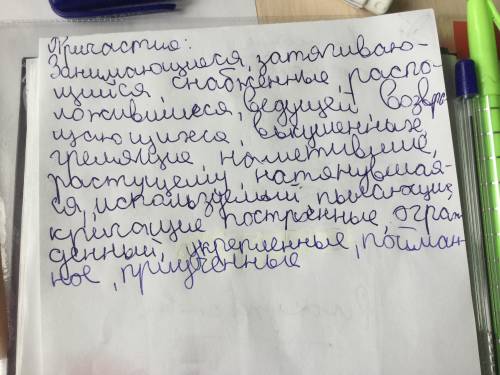 Причастие:
Занимающиеся, затягиваю-
щийся, снабженные, распо-
ложившиеся, ведущей, возвра-
щающихся, вкушенных,
гремящие, наметившие,
растущему, натянувшая-
ся, используемый, пылающие,
кричащие, построенные, ограж
денный, укрепленные, пойман-
ное, приученные